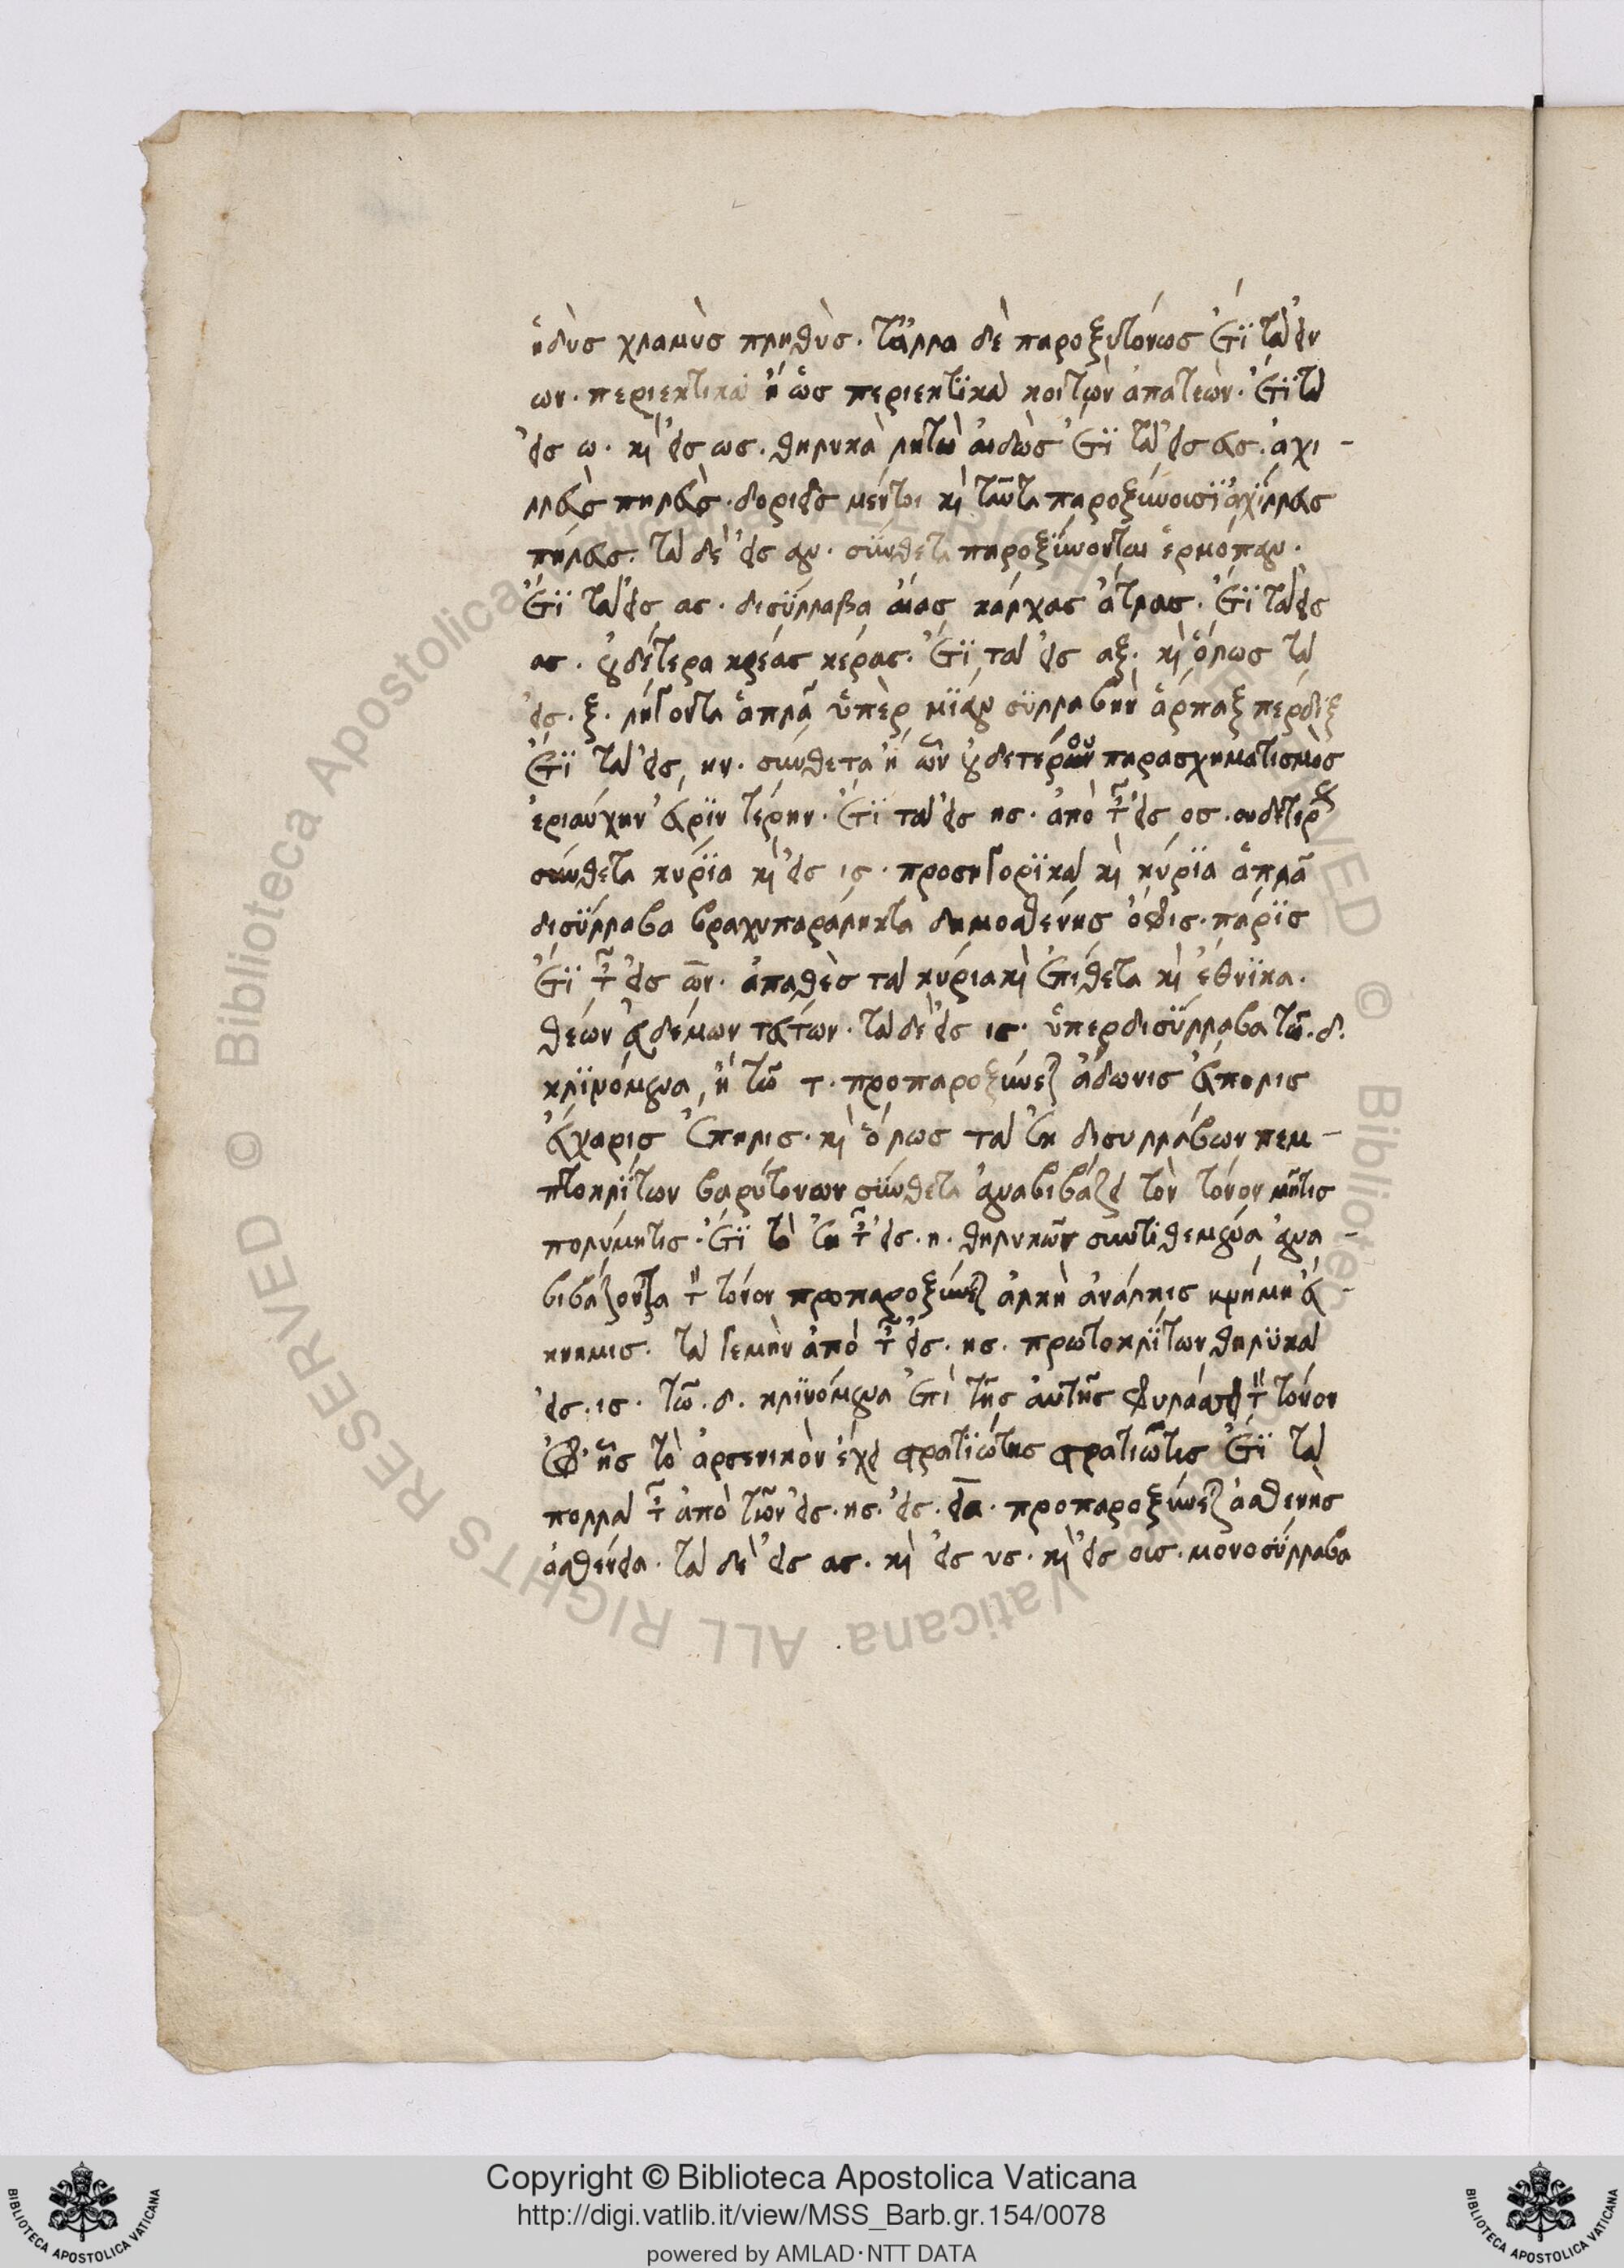 ἡδὺς χλαμὺς πληθὺς. τἄλλα δὲ παροξυτόνως ἔτι τὰ εἰς
ων. περιεκτικὰ ἢ ὡς περιεκτικὰ κοιτὼν ἀπατεών. ἔτι τὰ
εἰς ω. καὶ εἰς ως. θηλυκὰ λητὼ αἰδὼς ἔτι τὰ εἰς ευς. ἀχι-
λλεὺς πηλεὺς. δοριεῖς μέντοι καὶ ταῦτα παροξύνουσιν ἀχίλλευς
πήλευς. τὰ δὲ εἰς αν. σύνθετα παροξύνονται ἑρμόπαν.
ἔτι τὰ εἰς ας. δισύλλαβα αἴας κάλχας ἄτλας. ἔτι τὰ εἰς
ας. οὐδέτερα κρέας κέρας. ἔτι τὰ εἰς αξ. καὶ ὅλως τὰ
εἰς. ξ. λήγοντα ἁπλᾶ ὑπὲρ μίαν συλλαβὴν ἅρπαξ πέρδιξ
ἔτι τὰ εἰς ην. σύνθετα ἢ ὧν οὐδετέρου παρασχηματισμὸς
ἐριαύχην τέρην. ἔτι τὰ εἰς ης. ἀπὸ τῶν εἰς ος. οὐδετέρων
σύνθετα κύρια καὶ εἰς ις. προσηγορικὰ καὶ κύρια ἁπλᾶ
δισύλλαβα βραχυπαράληκτα δημοσθένης ὄφις. πάρις
ἔτι τῶν εἰς ων. ἀπαθὲς τὰ κύρια καὶ ἐπίθετα καὶ ἐθνικὰ.
θέων εὐδέμων τεύτων. τὰ δὲ εἰς ις. ὑπερδισύλλαβα τῶ. δ.
κλινόμενα, ἢ τῶ τ. προπαροξύνεται ἄδωνις εὔπολις
εὔχαρις ἔπηλις. καὶ ὅλως τὰ ἐκ δισυλλάβων πεμ-
πτοκλίτων βαρύτονων σύνθετα ἀναβιβάζει τὸν τόνον μῆτις
πολύμητις. ἔτι τὰ ἐκ τῶν εἰς. η. θηλυκῶν συντιθεμένα ἀνα-
βιβάζοντα τὸν τόνον προπαροξύνεται ἀλκὴ ἀνάλκις κνήμη εὔ-
κνημις. τὰ γεμὴν ἀπὸ τῶν εἰς. ης. πρωτοκλίτων θηλυκὰ
εἰς. ις. τῶ. δ. κλινόμενα ἐπὶ τῆς αὐτῆς φυλάσσει τὸν τόνον
ἐφ' ἧς τὸ ἀρσενικὸν ἔχει στρατιώτης στρατιῶτις ἔτι τὰ
πολλὰ τῶν ἀπὸ τῶν εἰς. ης. εἰς. εια. προπαροξύνεται ἀσθενὴς
ἀσθένεια. τὰ δὲ εἰς ας. καὶ εἰς υς. καὶ εἰς οις. μονοσύλλαβα